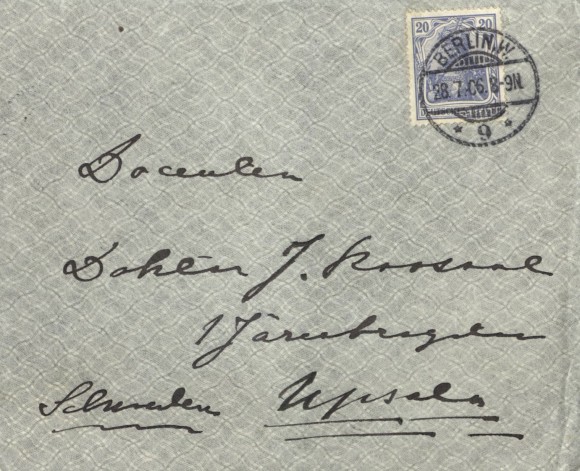 20 20
BERLIN.W.
28.7.06.8-9N.
* 9 *
Docenten
Doktor J. Roosval
1 Järnbrogatan
Schweden Upsala